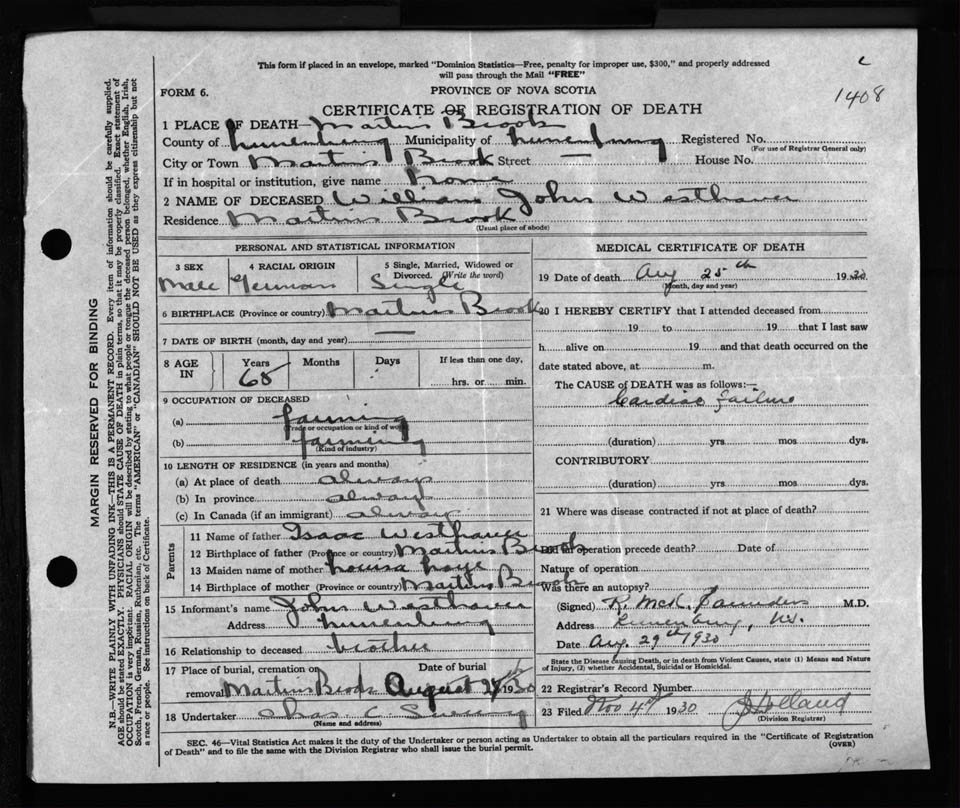 This form if placed in an envelope, marked "Dominion Statistics—Free, penalty for improper use, $300," and properly addressed
will pass through the Mail "FREE"
c
FORM 6.
PROVINCE OF NOVA SCOTIA
1408
CERTIFICATE OF REGISTRATION OF DEATH
1 PLACE OF DEATH— Martins Brook
County of Lunenburg Municipality of Lunenburg Registered No.
(For use of Registrar General only)
City or Town Martins Brook Street — House No.
If in hospital or institution, give name home
2 NAME OF DECEASED William John Westhaver
Residence Martins Brook
(Usual place of abode)
PERSONAL AND STATISTICAL INFORMATION
3 SEX 4 RACIAL ORIGIN 5 Single, Married, Widowed or
Divorced. (Write the word)
Male German Single
6 BIRTHPLACE (Province or country) Martins Brook
7 DATE OF BIRTH (month, day and year) —
8 AGE Years Months Days If less than one day,
IN 68 hrs. or min.
9 OCCUPATION OF DECEASED
(a) farming
(Trade or occupation or kind of work)
(b) farming
(Kind of industry)
10 LENGTH OF RESIDENCE (in years and months)
(a) At place of death always
(b) In province always
(c) In Canada (if an immigrant) always
Parents
11 Name of father Isaac Westhaver
12 Birthplace of father (Province or country) Martins Brook
13 Maiden name of mother Louisa
14 Birthplace of mother (Province or country) Martins Brook
15 Informant's name John Westhaver
Address Lunenburg
16 Relationship to deceased brother
17 Place of burial, cremation or Date of burial
removal Martins Brook August 27th 1930
18 Undertaker Chas. C
(Name and address)
MEDICAL CERTIFICATE OF DEATH
19 Date of death Aug 25th 1930
(Month, day and year)
20 I HEREBY CERTIFY that I attended deceased from
19 to 19 that I last saw
h alive on 19 and that death occurred on the
date stated above, at m.
The CAUSE of DEATH was as follows:—
Cardiac failure
(duration) yrs mos dys.
CONTRIBUTORY
(duration) yrs. mos. dys.
21 Where was disease contracted if not at place of death?
Did an operation precede death? Date of
Nature of operation
Was there an autopsy?
(Signed) R. McK. Saunders M.D.
Address Lunenburg, N.S.
Date Aug. 29th 1930
State the Disease causing Death, or in death from Violent Causes, state (1) Means and Nature
of Injury, (2) whether Accidental, Suicidal or Homicidal.
22 Registrar's Record Number
23 Filed Nov 4th 1930 J Holland
(Division Registrar)
SEC. 46—Vital Statistics Act makes it the duty of the Undertaker or person acting as Undertaker to obtain all the particulars required in the "Certificate of Registration
of Death" and to file the same with the Division Registrar who shall issue the burial permit.
(OVER)
MARGIN RESERVED FOR BINDING
N.B.—WRITE PLAINLY WITH UNFADING INK—THIS IS A PERMANENT RECORD. Every item of information should be carefully supplied.
AGE should be stated EXACTLY. PHYSICIANS should STATE CAUSE OF DEATH in plain terms, so that it may be properly classified. Exact statement of
OCCUPATION is very important. RACIAL ORIGIN will be described by stating to what people or tongue the deceased person belonged, whether English, Irish,
Scotch, French, German, Russian, Ruthenian, etc. The terms "AMERICAN" or "CANADIAN" SHOULD NOT BE USED as they express citizenship but not
a race or people. See instructions on back of Certificate.